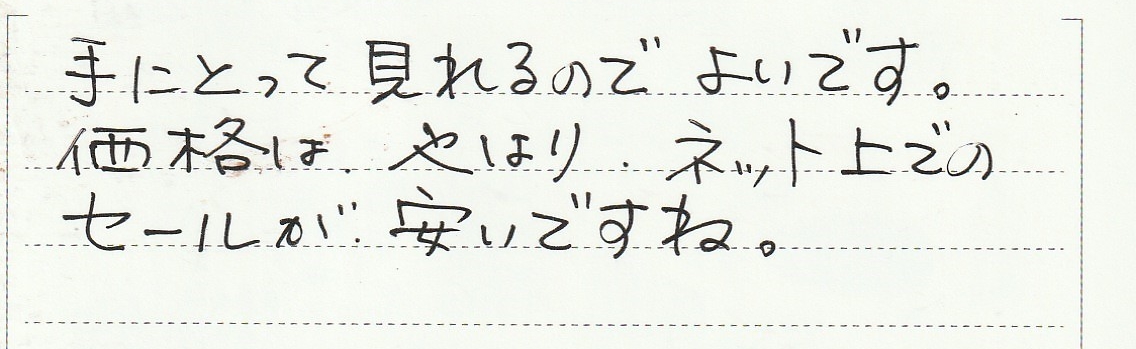 手にとって見れるのでよいです。
価格は、やはり、ネット上での
セールが、安いですね。